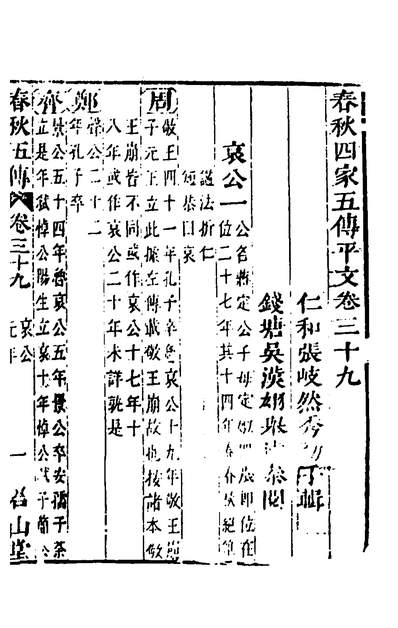 春秋四家五傳平文卷三十九
仁和張岐然秀初輯
錢塘吳漢翊 閱
哀公一
公名蔣定公子母定姒 即位在
位二十七年其十四年春春秋絕筆
諡法折仁
短恭曰哀
周
敬王四十一年孔子卒魯哀公十九年敬王崩
子元王立此據左傳敬王崩故也按諸本敬
王崩皆不同或作哀公十七年十
八年或作哀公二十年未詳孰是
鄭
聲公二十二
年孔子卒
齊
景公五十四年魯哀公五年景公卒安孺子荼
立是年弒悼公陽生立哀十年悼公弒子簡公
春秋五傳
卷三十九
哀公
元年
一
山堂